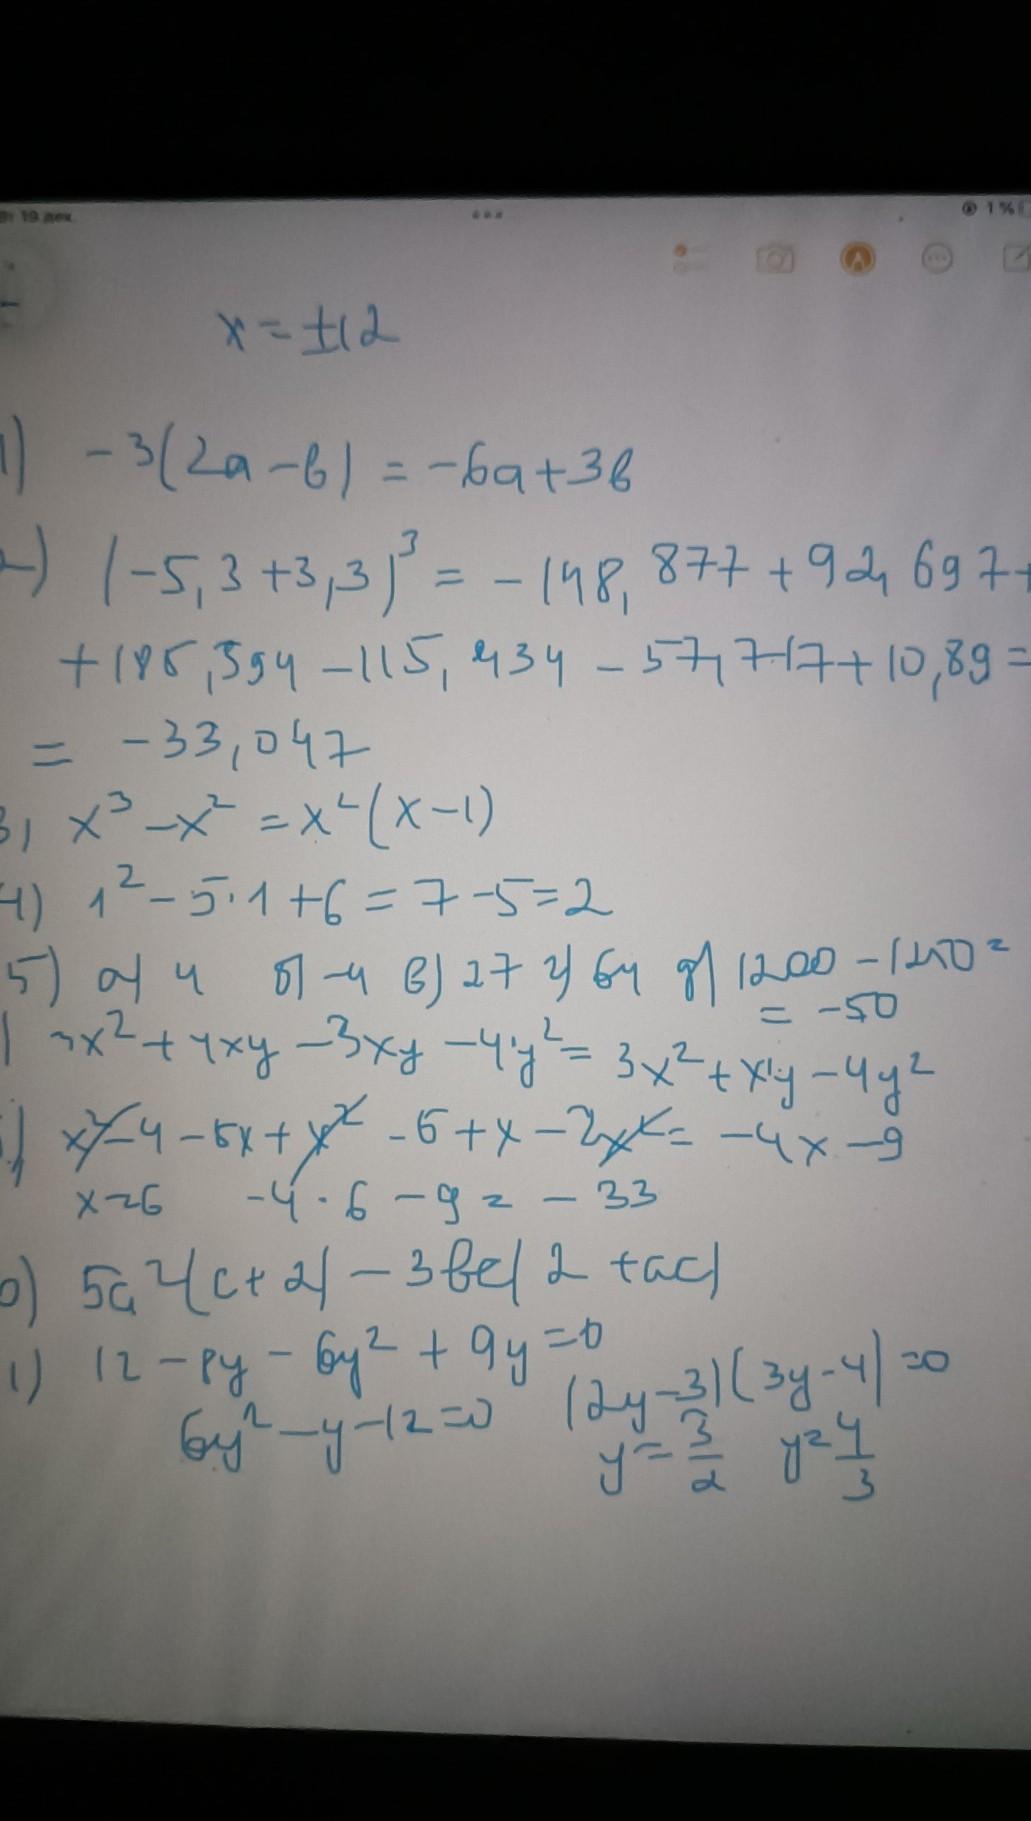 Вт 19 дек.
1%
x = ±12
1) -3(2a-в) = -6a+3в
2) (-5,3+3,3)³ = -148,877+92,697+
+185,394-115,434-57,717+10,89=
= -33,047
3) x³-x² = x²(x-1)
4) 1²-5·1+6=7-5=2
5) а) 4 б) -4 в) 27 г) 64 д) 1200-1250=
= -50
) 3x²+4xy-3xy-4y²=3x²+xy-4y²
) x²-4-5x+x²-5+x-2x²= -4x-9
x=6 -4·6-9= -33
0) 5a²(c+2)-3вc(2+ac)
1) 12-8y-6y²+9y=0
6y²-y-12=0 (2y-3)(3y-4)=0
y=3/2 y=4/3